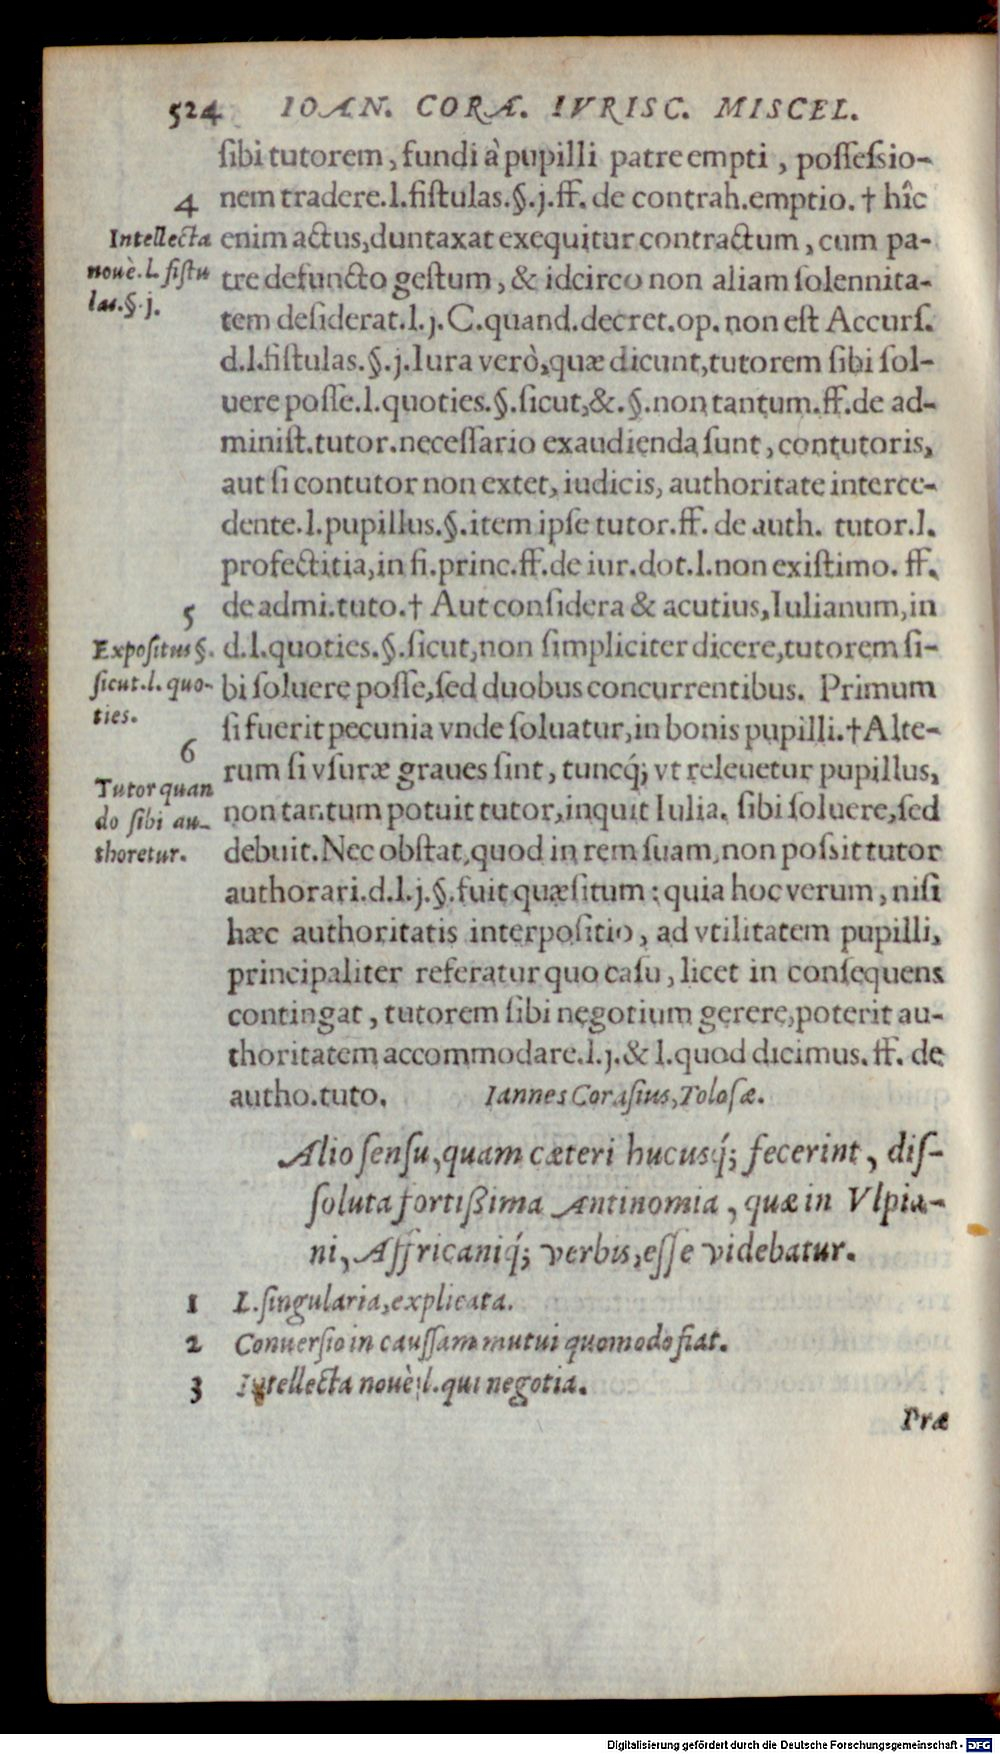 524 IOAN. CORÆ. IVRISC. MISCEL.
sibi tutorem, fundi à pupilli patre empti, possessio-
nem tradere.l.fistulas.§.j.ff. de contrah.emptio. † hîc
enim actus, duntaxat exequitur contractum, cum pa-
tre defuncto gestum, & idcirco non aliam solennita-
tem desiderat.l.j.C.quand.decret.op.non est Accurs.
d.l.fistulas.§.j.Iura verò, quæ dicunt, tutorem sibi sol-
uere posse.l.quoties.§.sicut,&.§.non tantum.ff.de ad-
minist.tutor.necessario exaudienda sunt, contutoris,
aut si contutor non extet, iudicis, authoritate interce-
dente.l.pupillus.§.item ipse tutor.ff. de auth. tutor.l.
profectitia,in fi.princ.ff.de iur.dot.l.non existimo. ff.
de admi.tuto.† Aut considera & acutius, Iulianum, in
d.l.quoties.§.sicut, non simpliciter dicere, tutorem si-
bi soluere posse, sed duobus concurrentibus. Primum
si fuerit pecunia vnde soluatur, in bonis pupilli.† Alte-
rum si vsuræ graues sint, tuncq́; vt releuetur pupillus,
non tantum potuit tutor, inquit Iulia. sibi soluere, sed
debuit. Nec obstat, quod in rem suam, non possit tutor
authorari.d.l.j.§.fuit quæsitum: quia hoc verum, nisi
hæc authoritatis interpositio, ad vtilitatem pupilli,
principaliter referatur quo casu, licet in consequens
contingat, tutorem sibi negotium gerere, poterit au-
thoritatem accommodare.l.j.& l.quod dicimus. ff. de
autho.tuto. Iannes Corasius, Tolosæ.
4
Intellecta
nouè.l. fistu
las.§.j.
5
Expositus §.
sicut.l. quo-
ties.
6
Tutor quan
do sibi au-
thoretur.
Alio sensu, quam cæteri hucusq́; fecerint, dis-
soluta fortißima Antinomia, quæ in Vlpia-
ni, Affricaniq́; verbis, esse videbatur.
1 L.singularia, explicata.
2 Conuersio in caussam mutui quomodo fiat.
3 Intellecta nouè l.qui negotia.
Præ
Digitalisierung gefördert durch die Deutsche Forschungsgemeinschaft - DFG